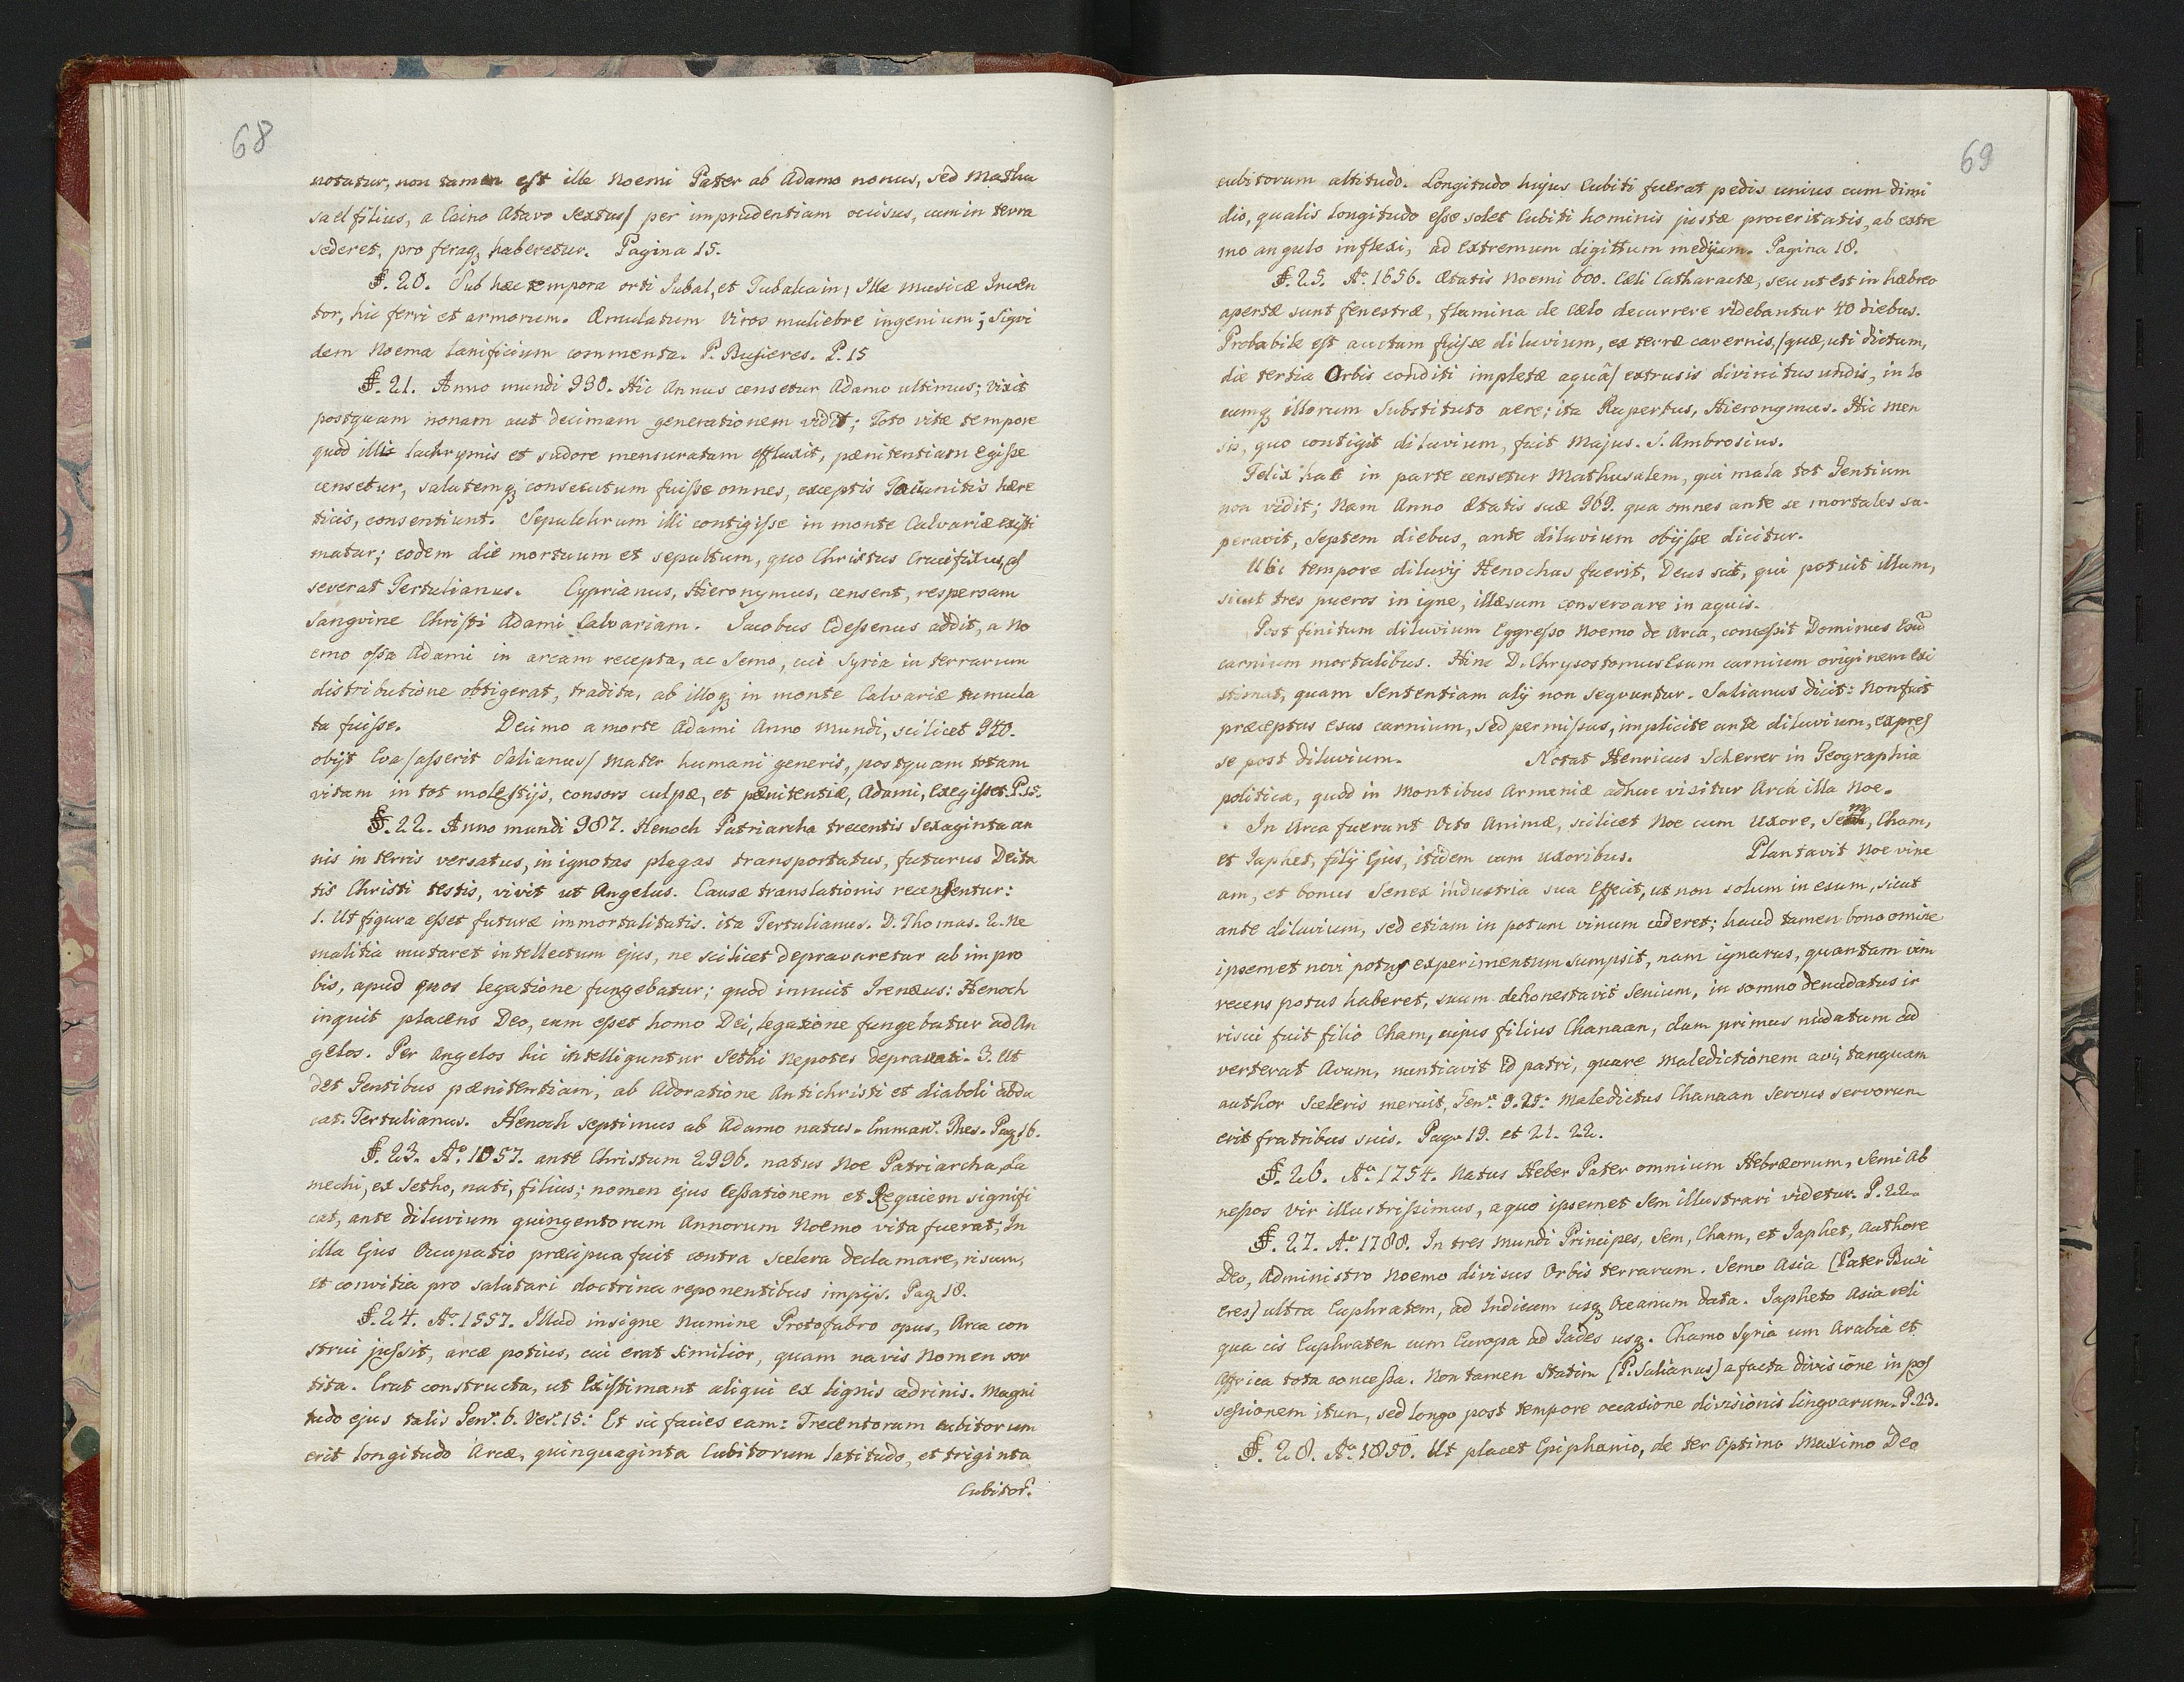 68
notatur, non tamen est ille Noemi Pater ab Adamo nonus, sed Mathu
sael filius, a Caino Atavo sextus/ per imprudentiam occisus, cum in terra
sederet, pro feraq₃ haberetur. Pagina 15.
§. 20. Sub hæc tempora orti Jubal, et Tubalcain, Ille musicæ Inven
tor, hic ferri et armorum. Æmulatum viros muliebre ingenium; Siqvi
dem Noema lanificium commenta. P. Bussieres. P. 15
§. 21. Anno mundi 930. Hic Annus censetur Adamo ultimus; vixit
postquam nonam aut decimam generationem vidit; Toto vitæ tempore
quod illis lachrymis et sudore mensuratum effluxit, pænitentiam Egisse
censetur, salutemq₃ consecutum fuisse omnes, exceptis Tacianitis hære
ticis, consentiunt. Sepulchrum illi contigisse in monte Calvariæ existi
matur; eodem die mortuum et sepultum, quo Christus Crucifixus, as
severat Tertulianus. Cyprianus, Hieronymus, censent, respersam
Sangvine Christi Adami Calvariam. Jacobus Edessenus addit, a No
emo ossa Adami in arcam recepta, ac Semo, cui Syria in terrarum
distributione obtigerat, tradita, ab illoq₃ in monte Calvariæ tumula
ta fuisse. Decimo a morte Adami Anno Mundi, scilicet 940.
obijt Eva /asserit Salianus/ Mater humani generis, postquam totam
vitam in tot molestijs, consors culpæ, et pænitentiæ, Adami, Exegisset. P. 15.
§. 22. Anno mundi 987. Henoch Patriarcha trecentis Sexaginta an
nis in terris versatus, in ignotas plagas transportatus, futurus Deita
tis Christi testis, vivit ut Angelus. Causæ translationis recensentur:
1. Ut figura esset futuræ immortalitatis. ita Tertulianus. D. Thomas. 2. Ne
malitia mutaret intellectum ejus, ne scilicet depravaretur ab impro
bis, apud quos legatione fungebatur; quod innuit Irenæus: Henoch
inquit placens Deo, cum esset homo Dei, legatione fungebatur ad An
gelos. Per Angelos hic intelliguntur Sethi Nepotes depravati. 3. Ut
det Gentibus pænitentiam, ab Adoratione Antichristi et diaboli abdu
cat. Tertulianus. Henoch septimus ab Adamo natus. Emmanˡ. Thes. Pag. 16.
§. 23. Aº. 1057. ante Christum 2996. natus Noe Patriarcha, La
mechi, ex Setho, nati, filius; nomen ejus Cessationem et Requiem signifi
cat, ante diluvium quingentorum Annorum Noemo vita fuerat, In
illa Ejus Occupatio præcipua fuit contra scelera declamare, risum,
et convitia pro salutari doctrina reponentibus impijs. Pag. 18.
§. 24. Aº. 1557. Illud insigne Numine Protofabro opus, Arca con
strui jussit, arcæ potius, cui erat similior, quam navis Nomen sor
tita. Erat constructa, ut Existimant aliqui ex lignis cædrinis. Magni
tudo ejus talis Genˢ. 6. Ver. 15: Et sic facies eam: Trecentorum cubitorum
erit longitudo Arcæ, quinquaginta Cubitorum latitudo, et triginta
Cubitor.
69
cubitorum altitudo. Longitudo hujus Cubiti fuerat pedis unius cum dimi
dio, qualis longitudo esse solet Cubiti hominis justæ proceritatis, ab extre
mo angulo inflexi, ad Extremum digittum medijum. Pagina 18.
§. 25. Aº. 1656. Ætatis Noemi 600. Cæli Catharactæ, seu ut est in hæbreo
apertæ sunt fenestræ, flumina de Cælo decurrere videbantur 40 diebus.
Probabile est auctum fuisse diluvium, ex terræ cavernis, /quæ, uti dictum,
die tertia Orbis conditi impletæ aquâ/ extrusis divinitus undis, in lo
cumq₃ illorum Substituto aere; ita Rupertus, Hieronymus. Hic men
sis, quo contigit diluvium, fuit Majus. S. Ambrosius.
Felix hac in parte censetur Mathusalem, qui mala tot Gentium
non vidit; Nam Anno Ætatis suæ 969. qua omnes ante se mortales su-
peravit, Septem diebus, ante diluvium obijsse dicitur.
Ubi tempore diluvij Henochus fuerit, Deus scit, qui potuit illum,
sicut tres pueros in igne, illæsum conservare in aquis.
Post finitum diluvium Eggresso Noemo de Arca, concessit Dominus Esũ
carnium mortalibus. Hinc D. Chrysostomus Esum carnium originem exi
stimat, quam Sententiam alij non seqvuntur. Salianus dicit: Non fuit
præceptus esus carnium, sed permissus, implicite ante diluvium, expres
se post diluvium. Notat Henricus Scherrer in Geographia
politica, quod in Montibus Armeniæ adhuc visitur Arca illa Noe.
In Arca fuerunt Octo Animæ, scilicet Noe cum Uxore, Sem, Cham,
et Japhet, filij Ejus, itidem cum uxoribus. Plantavit Noe vine
am, et bonus Senex industria sua Effecit, ut non solum in esum, sicut
ante diluvium, sed etiam in potum vinum cederet; haud tamen bono omine
ipsemet novi potus experimentum sumpsit, nam ignarus, quantam vim
recens potus haberet, suum dehonestavit Senium, in somno denudatus ir
risui fuit filio Cham, cujus filius Chanaan, dum primus nudatum ad
verterat Avum, nuntiavit id patri, quare Maledictionem avi, tanquam
author Sceleris meruit, Genˢ. 9. 25: Maledictus Chanaan Servus servorum
erit fratribus suis. Pag. 19. et 21. 22.
§. 26. Aº. 1754. Natus Heber Pater omnium Hebræorum, Semi Ab
nepos vir illustrissimus, a quo ipsemet Sem illustrari videtur. P. 22.
§. 27. Aº. 1788. In tres Mundi Principes, Sem, Cham, et Japhet, Authore
Deo, Administro Noemo divisus Orbis terrarum. Semo Asia (Pater Busi
eres) ultra Euphratem, ad Indicum usq₃ Oceanum data. Japheto Asia reli
qua cis Euphraten cum Europa ad Gades usq₃. Chamo Syria um Arabia et
Affrica tota concessa. Non tamen Statim (P. Salianus) a facta divisione in pos
sessionem itum, sed longo post tempore occasione divisionis lingvarum. P. 23.
§. 28. Aº. 1850. Ut placet Epiphanio, de ter Optimo Maximo Deo